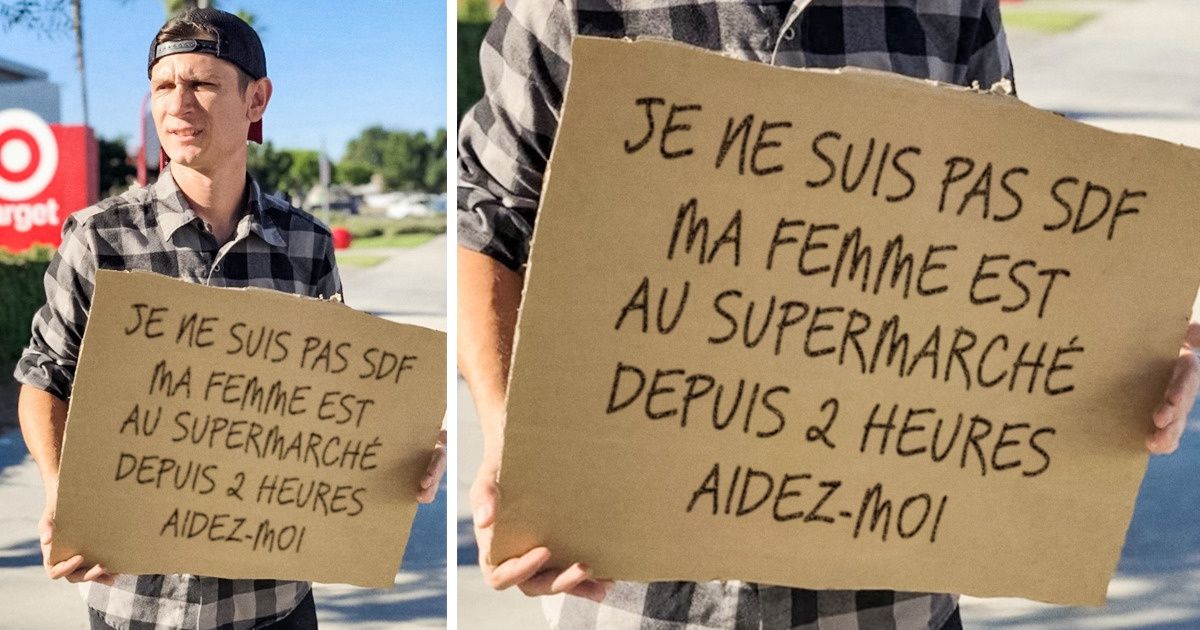 arget
JE NE SUIS PAS SDF
MA FEMME EST
AU SUPERMARCHÉ
DEPUIS 2 HEURES
AIDEZ-MOI
JE NE SUIS PAS SDF
MA FEMME EST
AU SUPERMARCHÉ
DEPUIS 2 HEURES
AIDEZ-MOI